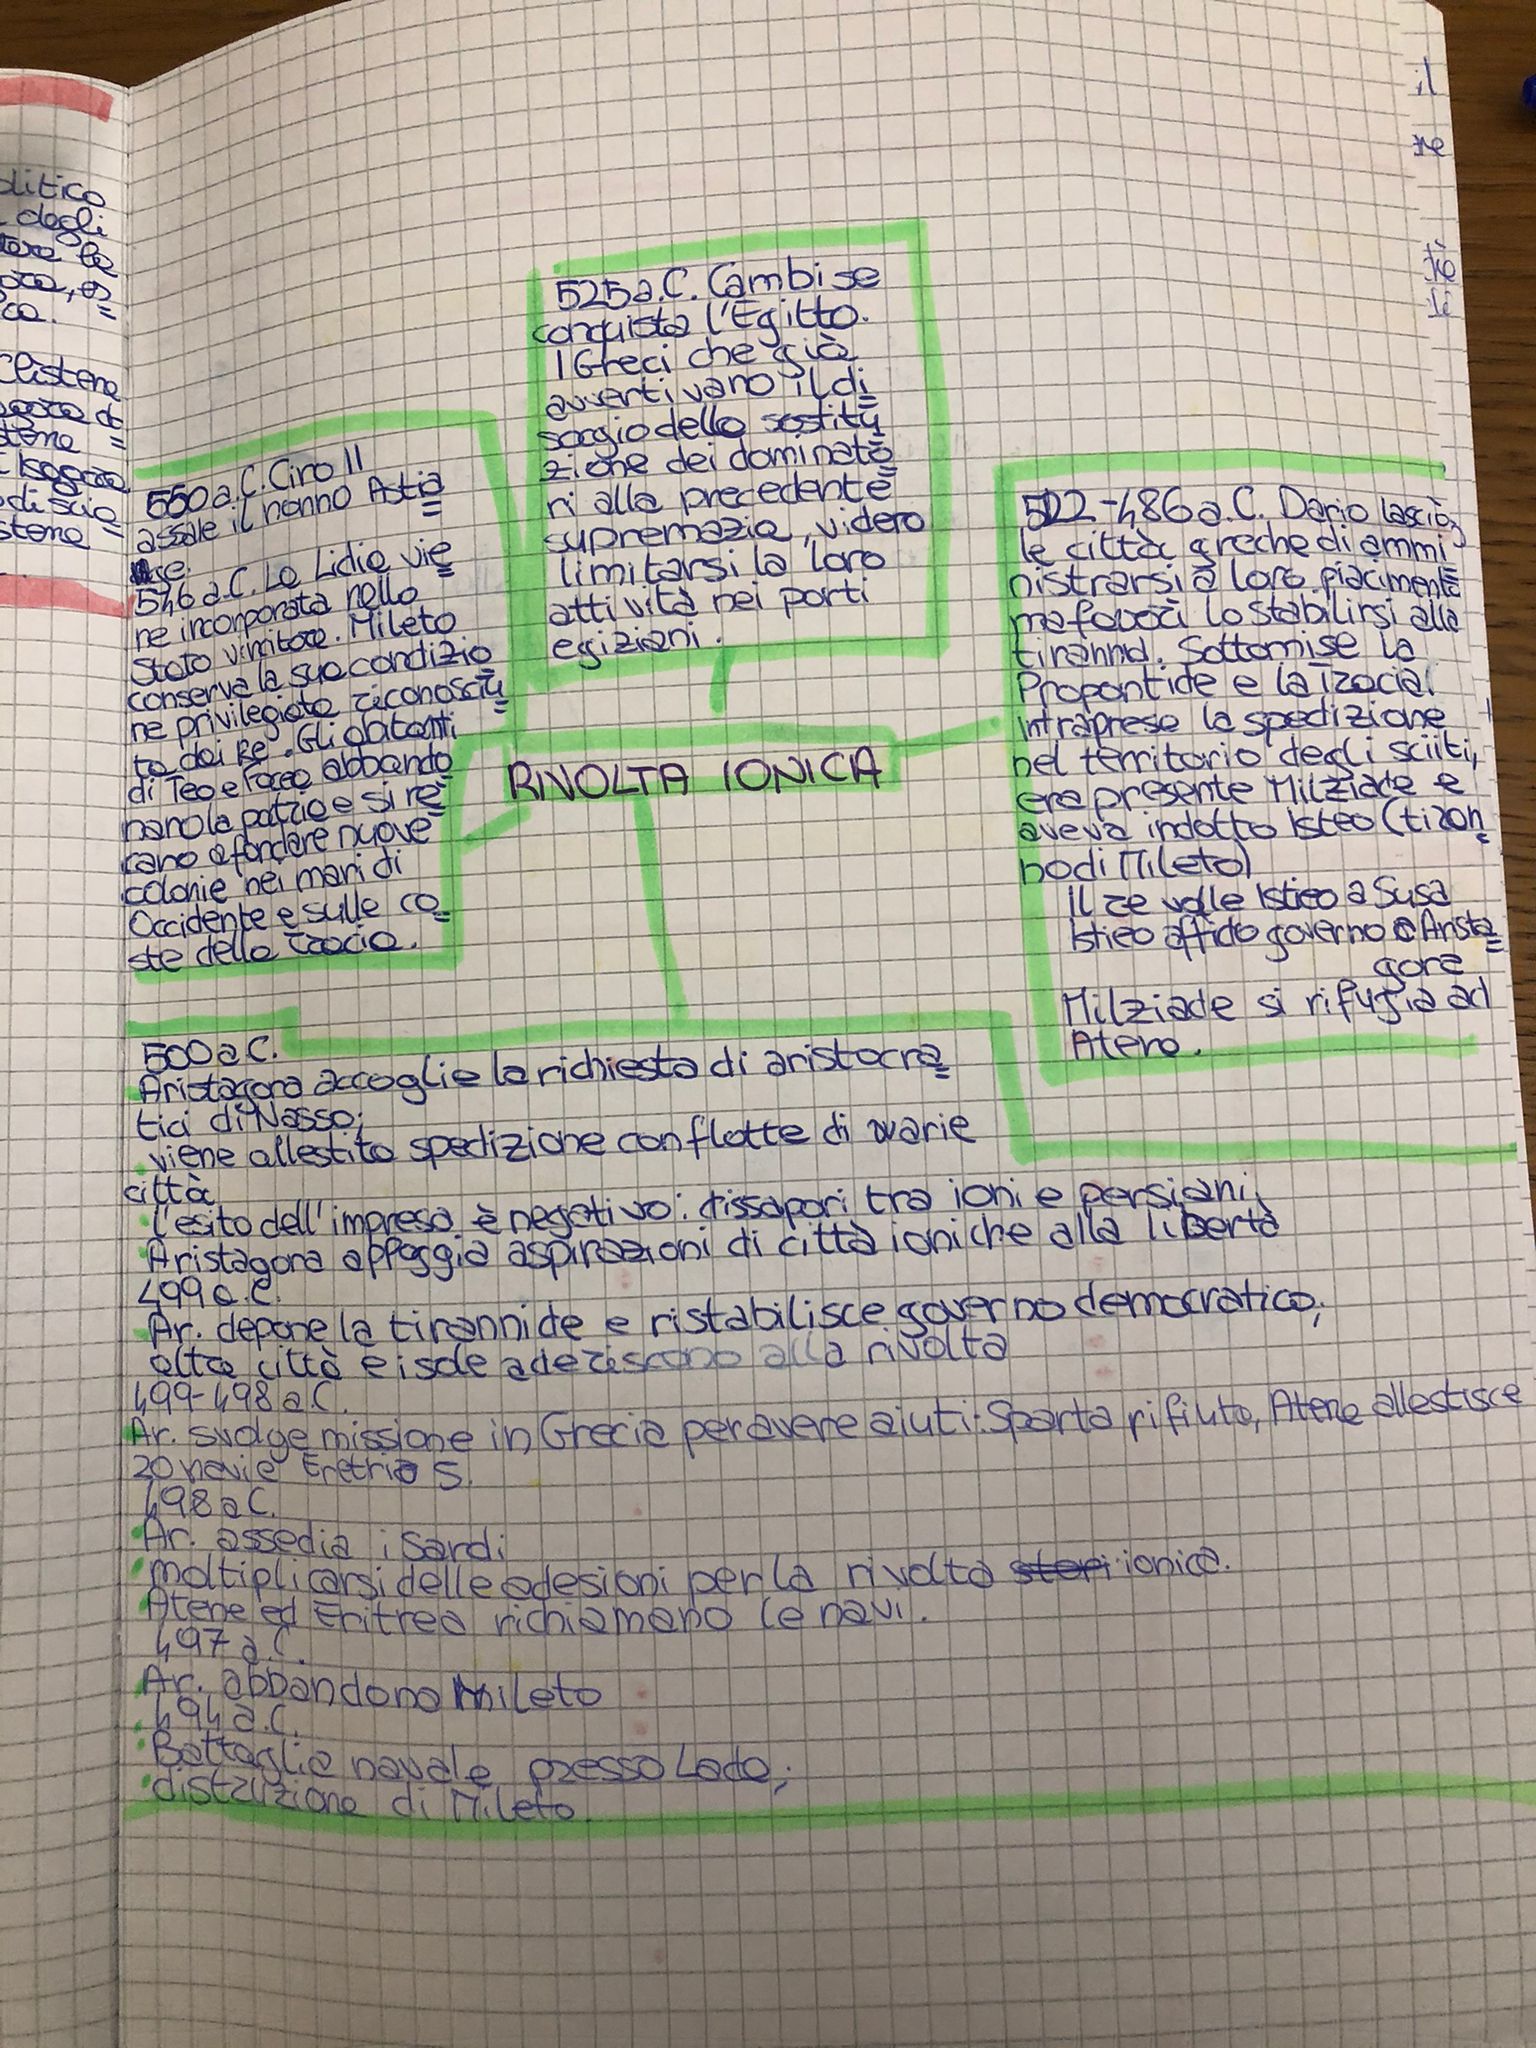 olitico
degli
ca.
Clistene
Isagora
stene
il
re
525 a.C. Cambise
conquista l'Egitto.
I Greci che già
avvertivano il di
sagio della sostitu
zione dei dominato
ri alla precedente
supremazia, videro
limitarsi la loro
attività nei porti
egiziani.
550 a.C. Ciro II
assale il nonno Astia
ge.
546 a.C. La Lidia vie
ne incorporata nello
Stato vincitore. Mileto
conserva la sua condizio
ne privilegiata riconosciu
ta dai Re. Gli abitanti
di Teo e Focea abbando
nano la patria e si re
cano a fondare nuove
colonie nei mari di
Occidente e sulle co
ste della Tracia.
RIVOLTA IONICA
522-486 a.C. Dario lasciò
le città greche di ammi
nistrarsi a loro piacimento
ma favorì lo stabilirsi alla
tirannd. Sottomise la
Propontide e la Tracia.
Intraprese la spedizione
nel territorio degli sciiti,
era presente Milziade e
aveva indotto Isteo (tiran
no di Mileto)
Il re volle Istieo a Susa
Istieo affido governo a Arista
gora
Milziade si rifugia ad
Atene.
500 a C.
Aristagora accoglie la richiesta di aristocra
tici di Nasso;
viene allestita spedizione con flotte di varie
città
l'esito dell'impresa è negativo: dissapori tra ioni e persiani,
Aristagora appoggia aspirazioni di città ioniche alla libertà
499 a.C.
Ar. depone la tirannide e ristabilisce governo democratico;
altre città e isole aderiscono alla rivolta
499-498 a.C.
Ar. svolge missione in Grecia per avere aiuti: Sparta rifiuta, Atene allestisce
20 navi e Eretria 5.
498 a C.
Ar. assedia i Sardi
moltiplicarsi delle adesioni per la rivolta ionica.
Atene ed Eritrea richiamano le navi.
497 a.C.
Ar. abbandona Mileto
494 a.C.
Battaglia navale presso Lade;
distruzione di Mileto.